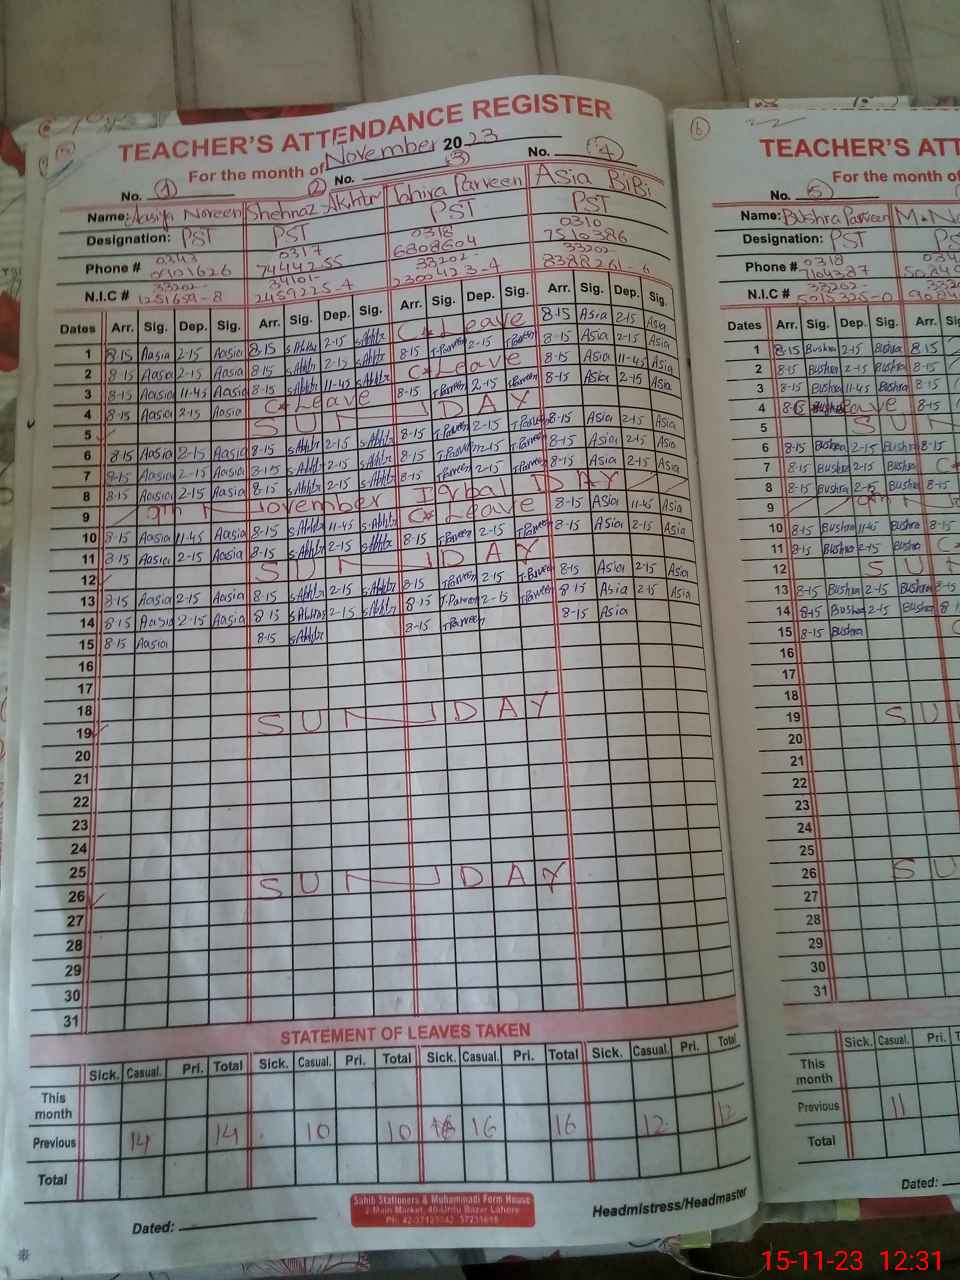 TEACHER'S ATTENDANCE REGISTER
For the month of November 2023
No. 1 2 No. 3 No. 4
Name: Noreen Shehnaz Akhtar Tahira Parveen Asia BiBi
Designation: PST PST PST PST
Phone # 0317 0318 0310
7444255 6808604 7510386
N.I.C # 33202- 34101- 33202- 33202-
Dates Arr. Sig. Dep. Sig. Arr. Sig. Dep. Sig. Arr. Sig. Dep. Sig. Arr. Sig. Dep. Sig.
1 8-15 Aasia 2-15 Aasia 8-15 S.Akhtar 2-15 S.Akhtar C*Leave 8-15 Asia 2-15 Asia
2 8-15 Aasia 2-15 Aasia 8-15 S.Akhtar 2-15 S.Akhtar 8-15 T.Parveen 2-15 T.Parveen 8-15 Asia 2-15 Asia
3 8-15 Aasia 11-45 Aasia 8-15 S.Akhtar 11-45 S.Akhtar C*Leave 8-15 Asia 11-45 Asia
4 8-15 Aasia 2-15 Aasia C*Leave 8-15 T.Parveen 2-15 T.Parveen 8-15 Asia 2-15 Asia
5 SUNDAY
6 8-15 Aasia 2-15 Aasia 8-15 S.Akhtar 2-15 S.Akhtar 8-15 T.Parveen 2-15 T.Parveen 8-15 Asia 2-15 Asia
7 8-15 Aasia 2-15 Aasia 8-15 S.Akhtar 2-15 S.Akhtar 8-15 T.Parveen 2-15 T.Parveen 8-15 Asia 2-15 Asia
8 8-15 Aasia 2-15 Aasia 8-15 S.Akhtar 2-15 S.Akhtar 8-15 T.Parveen 2-15 T.Parveen 8-15 Asia 2-15 Asia
9 9th November Iqbal DAY
10 8-15 Aasia 11-45 Aasia 8-15 S.Akhtar 11-45 S.Akhtar C*Leave 8-15 Asia 11-45 Asia
11 8-15 Aasia 2-15 Aasia 8-15 S.Akhtar 2-15 S.Akhtar 8-15 T.Parveen 2-15 T.Parveen 8-15 Asia 2-15 Asia
12 SUNDAY
13 8-15 Aasia 2-15 Aasia 8-15 S.Akhtar 2-15 S.Akhtar 8-15 T.Parveen 2-15 T.Parveen 8-15 Asia 2-15 Asia
14 8-15 Aasia 2-15 Aasia 8-15 S.Akhtar 2-15 S.Akhtar 8-15 T.Parveen 2-15 T.Parveen 8-15 Asia 2-15 Asia
15 8-15 Aasia 8-15 S.Akhtar 8-15 T.Parveen 8-15 Asia
16
17
18
19 SUNDAY
20
21
22
23
24
25
26 SUNDAY
27
28
29
30
31
STATEMENT OF LEAVES TAKEN
Sick. Casual. Pri. Total Sick. Casual. Pri. Total Sick. Casual. Pri. Total Sick. Casual. Pri. Total
This month
Previous 14 14 10 10 16 16 12 12
Total
Dated:
Sahib Stationers & Muhammadi Form House
2-Main Market, 40-Urdu Bazar Lahore
Headmistress/Headmaster
6
TEACHER'S ATT
For the month of
No. 5
Name: Bushra Parveen
Designation: PST
Phone # 0318
7104387
N.I.C # 33202-
Dates Arr. Sig. Dep. Sig. Arr.
1 8-15 Bushra 2-15 Bushra 8-15
2 8-15 Bushra 2-15 Bushra 8-15
3 8-15 Bushra 11-45 Bushra 8-15
4 Leave 8-15
5 SUN
6 8-15 Bushra 2-15 Bushra 8-15
7 8-15 Bushra 2-15 Bushra
8 8-15 Bushra 2-15 Bushra 8-15
9 9th
10 8-15 Bushra 11-45 Bushra 8-15
11 8-15 Bushra 2-15 Bushra
12 SU
13 8-15 Bushra 2-15 Bushra 8-15
14 8-15 Bushra 2-15 Bushra
15 8-15 Bushra
16
17
18
19 SU
20
21
22
23
24
25
26 SU
27
28
29
30
31
Sick. Casual. Pri.
This month
Previous 11
Total
Dated:
15-11-23 12:31